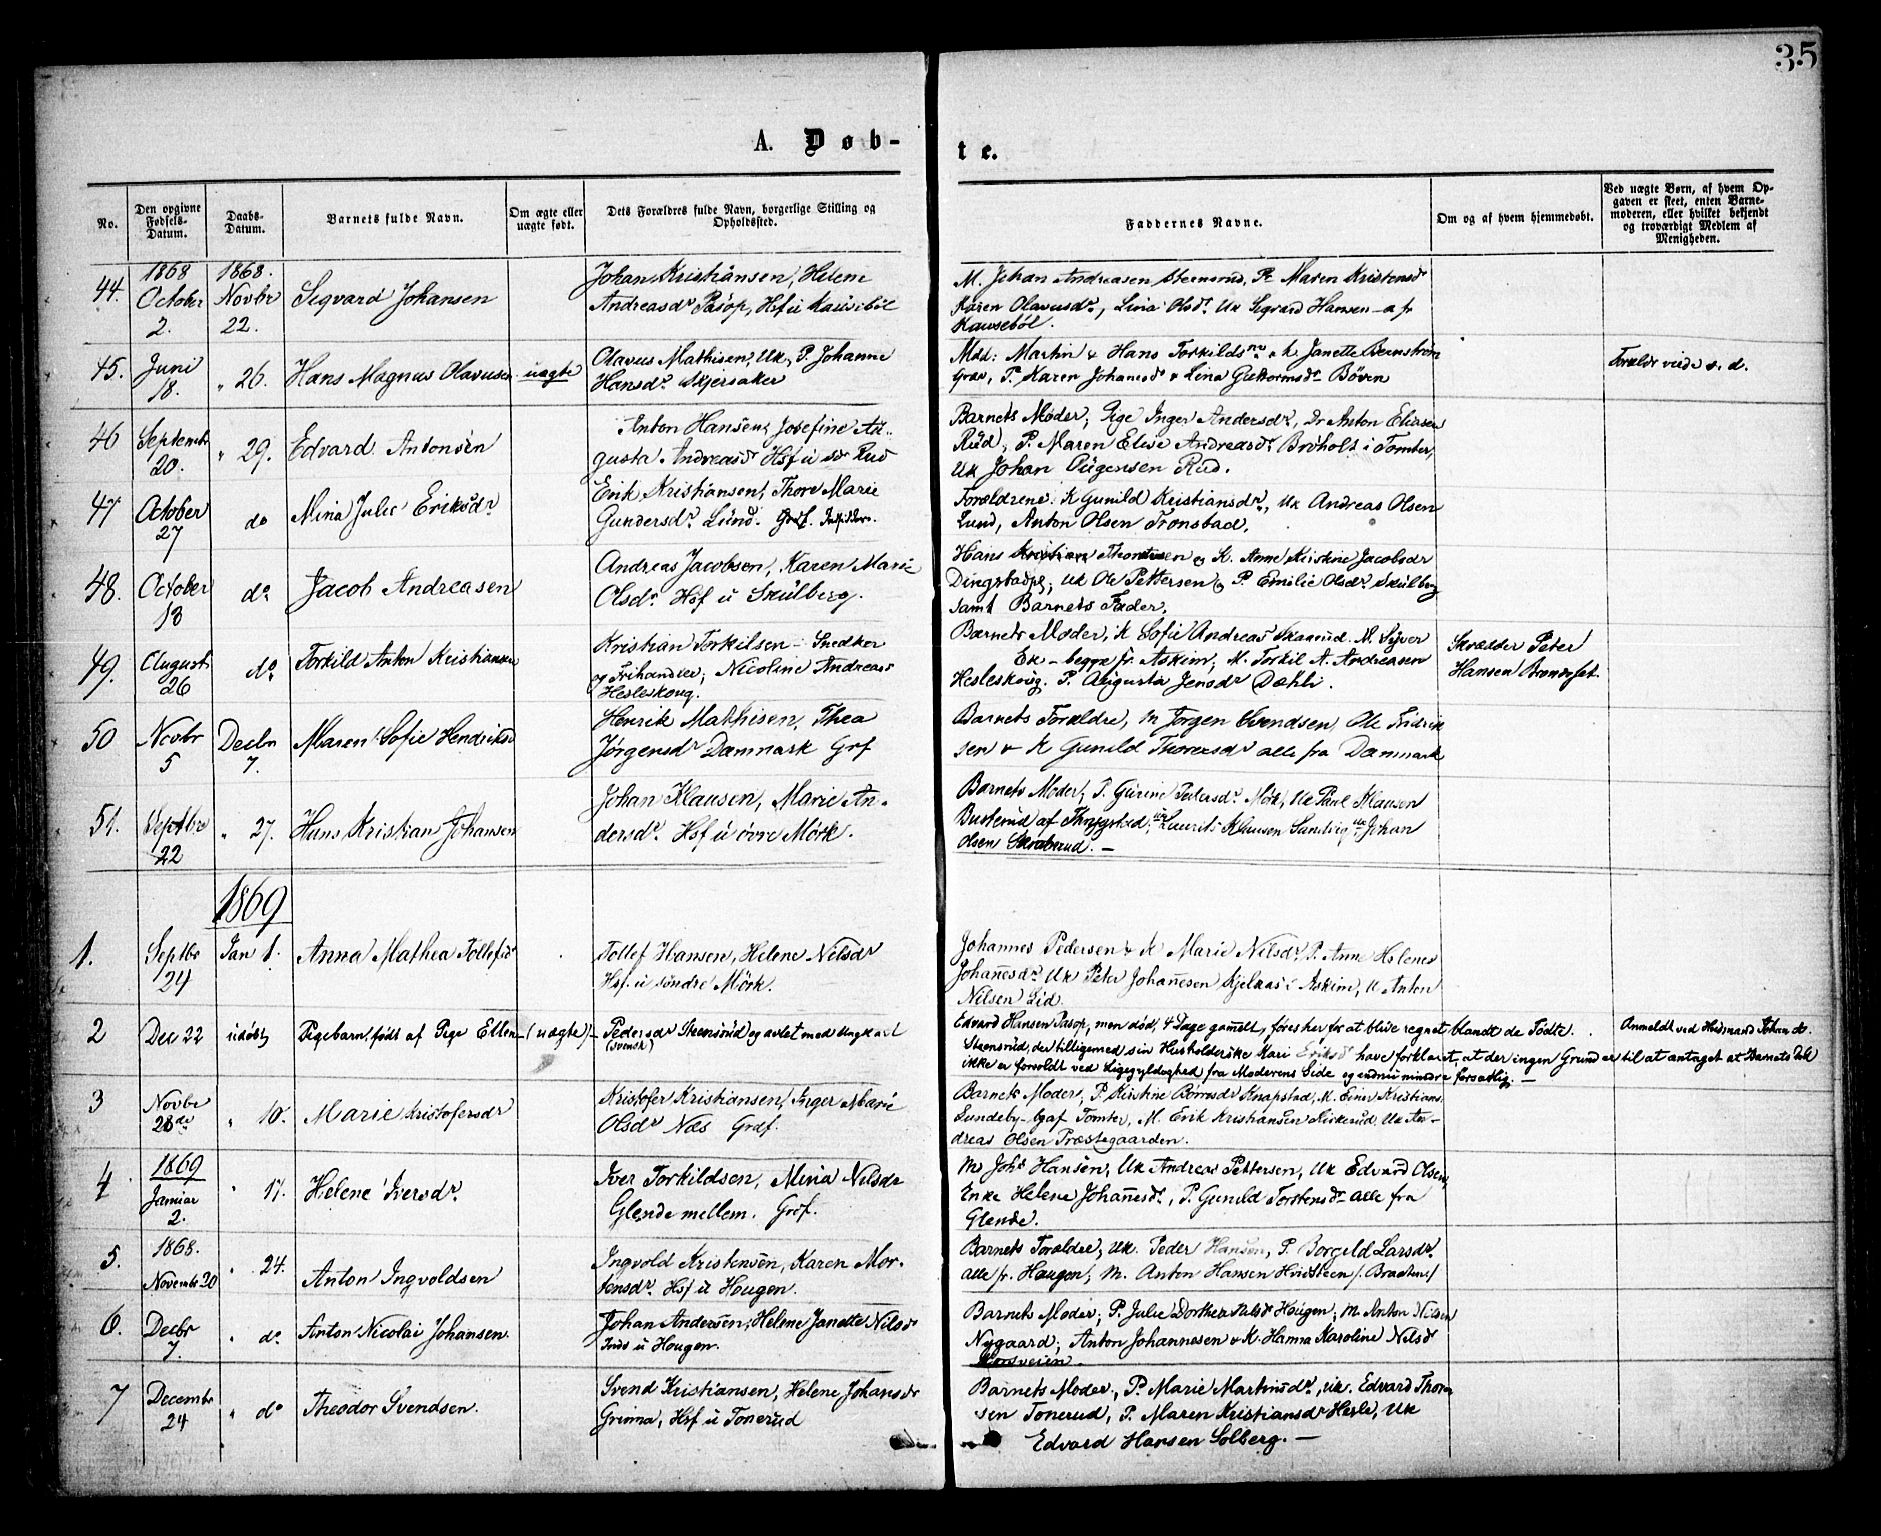 35
A. Døb-
te.
No.
Den opgivne Fødsels-Datum.
Daabs-Datum.
Barnets fulde Navn.
Om ægte eller uægte født.
Dets Forældres fulde Navn, borgerlige Stilling og Opholdssted.
Faddernes Navne.
Om og af hvem hjemmedøbt.
Ved uægte Børn, af hvem Opgaven er skeet, enten Barnemoderen, eller hvilket bekjendt og troværdigt Medlem af Menigheden.
44.
1868 October 2.
1868. Novbr 22.
Sigvard Johansen
Johan Kristiansen, Helene
Andreasdr Pasop, Hsf u
M. Johan Andreasen Steensrud, P. Maren Kristensdr
Karen Olavusdr, Lina Olsdr. Uk Sigvard Hansen a fr
45.
Juni 18.
" 26.
Hans Magnus Olavusen
uægte
Olavus Mathisen, Uk, P. Johanne
Hansdr. Skjersaker
Mdd: Martin & Hans Torkildsnr & k. Janette Bernström
Grav, P. Karen Johansdr & Lina Guttormsdr Böven
Forældr
46
Septembr 20.
" 29.
Edvard Antonsen
Anton Hansen, Josefine Au-
gusta Andreasdr Hsf u Rud
Barnets Moder, Pige Inger Andersdr, Dr Anton Eliasen
Rud, P. Maren Elise Andreasdr Broholt i Tomter,
Uk Johan Augensen Rud.
47
October 27
do
Mina Julie Eriksdr
Erik Kristiansen, Thore Marie
Gundersdr. Lund. Grf. Indsidder.
Forældrene. K Gunild Kristiansdr, Uk Andreas Olsen
Lund, Anton Olsen Tronstad.
48.
October 13
do
Jacob Andreasen
Andreas Jacobsen, Karen Marie
Olsdr. Hsf u Skulberg.
Hans Thomasen og K. Anne Kirstine Jacobsdr
Uk Ole Pettersen og P. Emilie Olsdr Skulberg
samt Barnets Fader.
49.
August 26
do
Torkild Anton Kristiansen
Kristian Torkilsen - Snedker
og Frihandler, Nicoline Andreasdr
Hesleskoug.
Barnets Moder, K Sofie Andreasdr Skaarud. M. Syver
Ek - begge fr. Askim, M. Torkil A. Andreasen
Hesleskoug. P. Augusta Jensdr Dæhli.
Skrædder Peter
Hansen
50
Novbr 5
Decbr 7.
Maren Sofie Hendriksdr
Henrik Mathisen, Thea
Jørgensdr Danmark Grf
Barnets Forældre, M Jørgen Svendsen, Ole Fredrik
sen & K Gunild Thoresdr alle fra Danmark
51.
Septbr 22
" 27.
Hans Kristian Johansen
Johan Klausen, Marie An-
dersdr. Hsf u övre Mörk.
Barnets Moder, P. Gurine Pedersdr. Mörk, Uk Paul Klausen
Busterud af Thrygstad, Uk Laurits Klausen Sandvig Uk Johan
Olsen
1869
1.
Septbr 24
Jan 1.
Anna Mathea Tollefsdr
Tollef Hansen, Helene Nilsdr
Hsf. u söndre Mörk.
Johannes Pedersen & K Marie Nilsdr, P. Anne Helene
Johannesdr. Uk Peter Johannesen Kjelaas i Askim, U Anton
Nilsen Lid.
2
Dec 22
udøbt
Pigebarn, født af Pige Ellen
(uægte)
Pedersdr Steensrud og avlet med Ungkarl
(svensk)
Edvard Hansen Pasop, men død, 4 Dage gammelt, føres her for at blive regnet blandt de Fødte.
Anmeldt ved Husmand Johan
Steensrud, der tilligemed sin Husholderske Kari Eriksdr have forklaret, at der ingen Grund er til at antaget at Barnets Død
ikke er forvoldt ved Ligegyldighed fra Moderens Side og endnu mindre forsætlig. —
3
Novbr 28de
" 10.
Marie Kristofersdr
Kristofer Kristiansen, Inger Marie
Olsdr Næs Grdf.
Barnets Moder, P. Kirstine Knapstad, M. Einer Kristians.
Sundeby af Tomter, M. Erik Kristiansen Kirkerud, Uk An-
dreas Olsen Præstegaarden.
4
1869 Januar 2.
" 17.
Helene Iversdr.
Iver Torkildsen, Mina Nilsdr
Glende mellem. Grdf.
M Johs Hansen, Uk Andreas Pettersen, Uk Edvard Olsen,
Enke Helene Johannesdr, P. Gunild Torstensdr alle fra
Glende.
5.
1868. Novembr 20
" 24.
Anton Ingvoldsen
Ingvold Kristensen, Karen Mor-
tensdr. Hsf u Hougen.
Barnets Forældre, Uk. Peder Hansen, P. Borgild Larsdr.
alle fr. Hougen, M. Anton Hansen Hvidsteen /. Braaten/
6.
Decbr 7.
" do
Anton Nicolai Johansen.
Johan Andersen, Helene Janette Nilsdr
Inds u Hougen.
Barnets Moder; P. Julie Dorthea Nilsdr Hougen; M. Anton Nilsen
Nygaard; Anton Johannesen & K. Hanna Karoline Nilsdr
Korsveien.
7
Decembr 24
" do
Theodor Svendsen.
Svend Kristiansen, Helene Johansdr
Grimna, Hsf u Tonerud
Barnets Moder, P. Marie Martinusdr, Uk. Edvard Thore
sen Tonerud, P. Maren Kristiansdr Hesle, Uk
Edvard Hansen Solberg. —